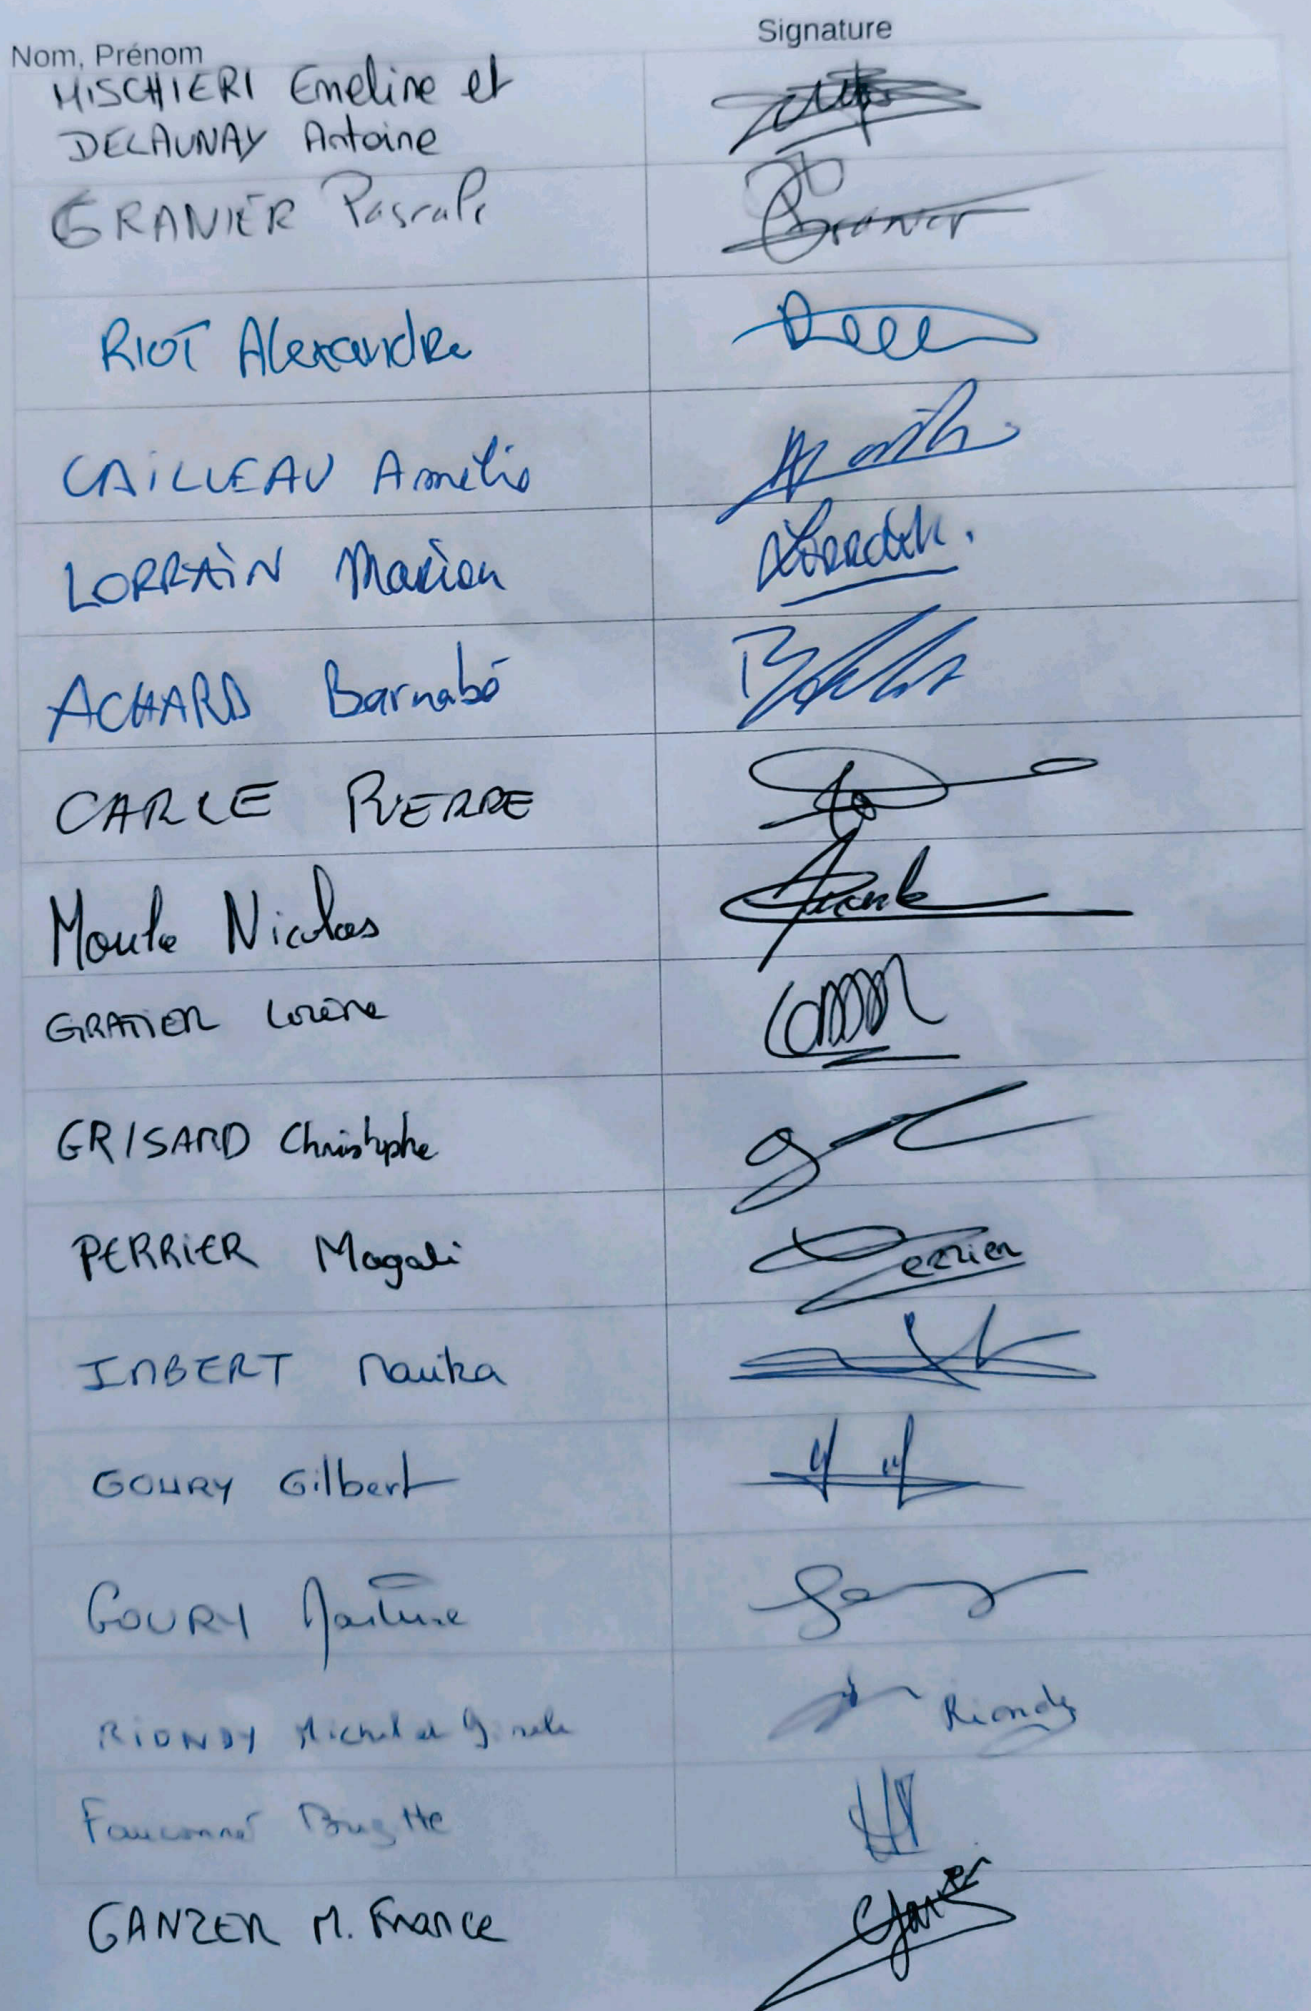 Nom, Prénom
Signature
MISCHIERI Emeline et
DELAUNAY Antoine
GRANIER Pascale
Granier
RIOT Alexandre
CAILLEAU Amélie
LORRAIN Marion
ACHARD Barnabé
CARLE PIERRE
Moule Nicolas
GRATIER Lorène
GRISARD Christophe
PERRIER Magali
Perrier
IMBERT Maïka
GOURY Gilbert
GOURY
RIONDY Michel et Gisele
Riondy
Fauconnet Brigitte
GANZER M. France